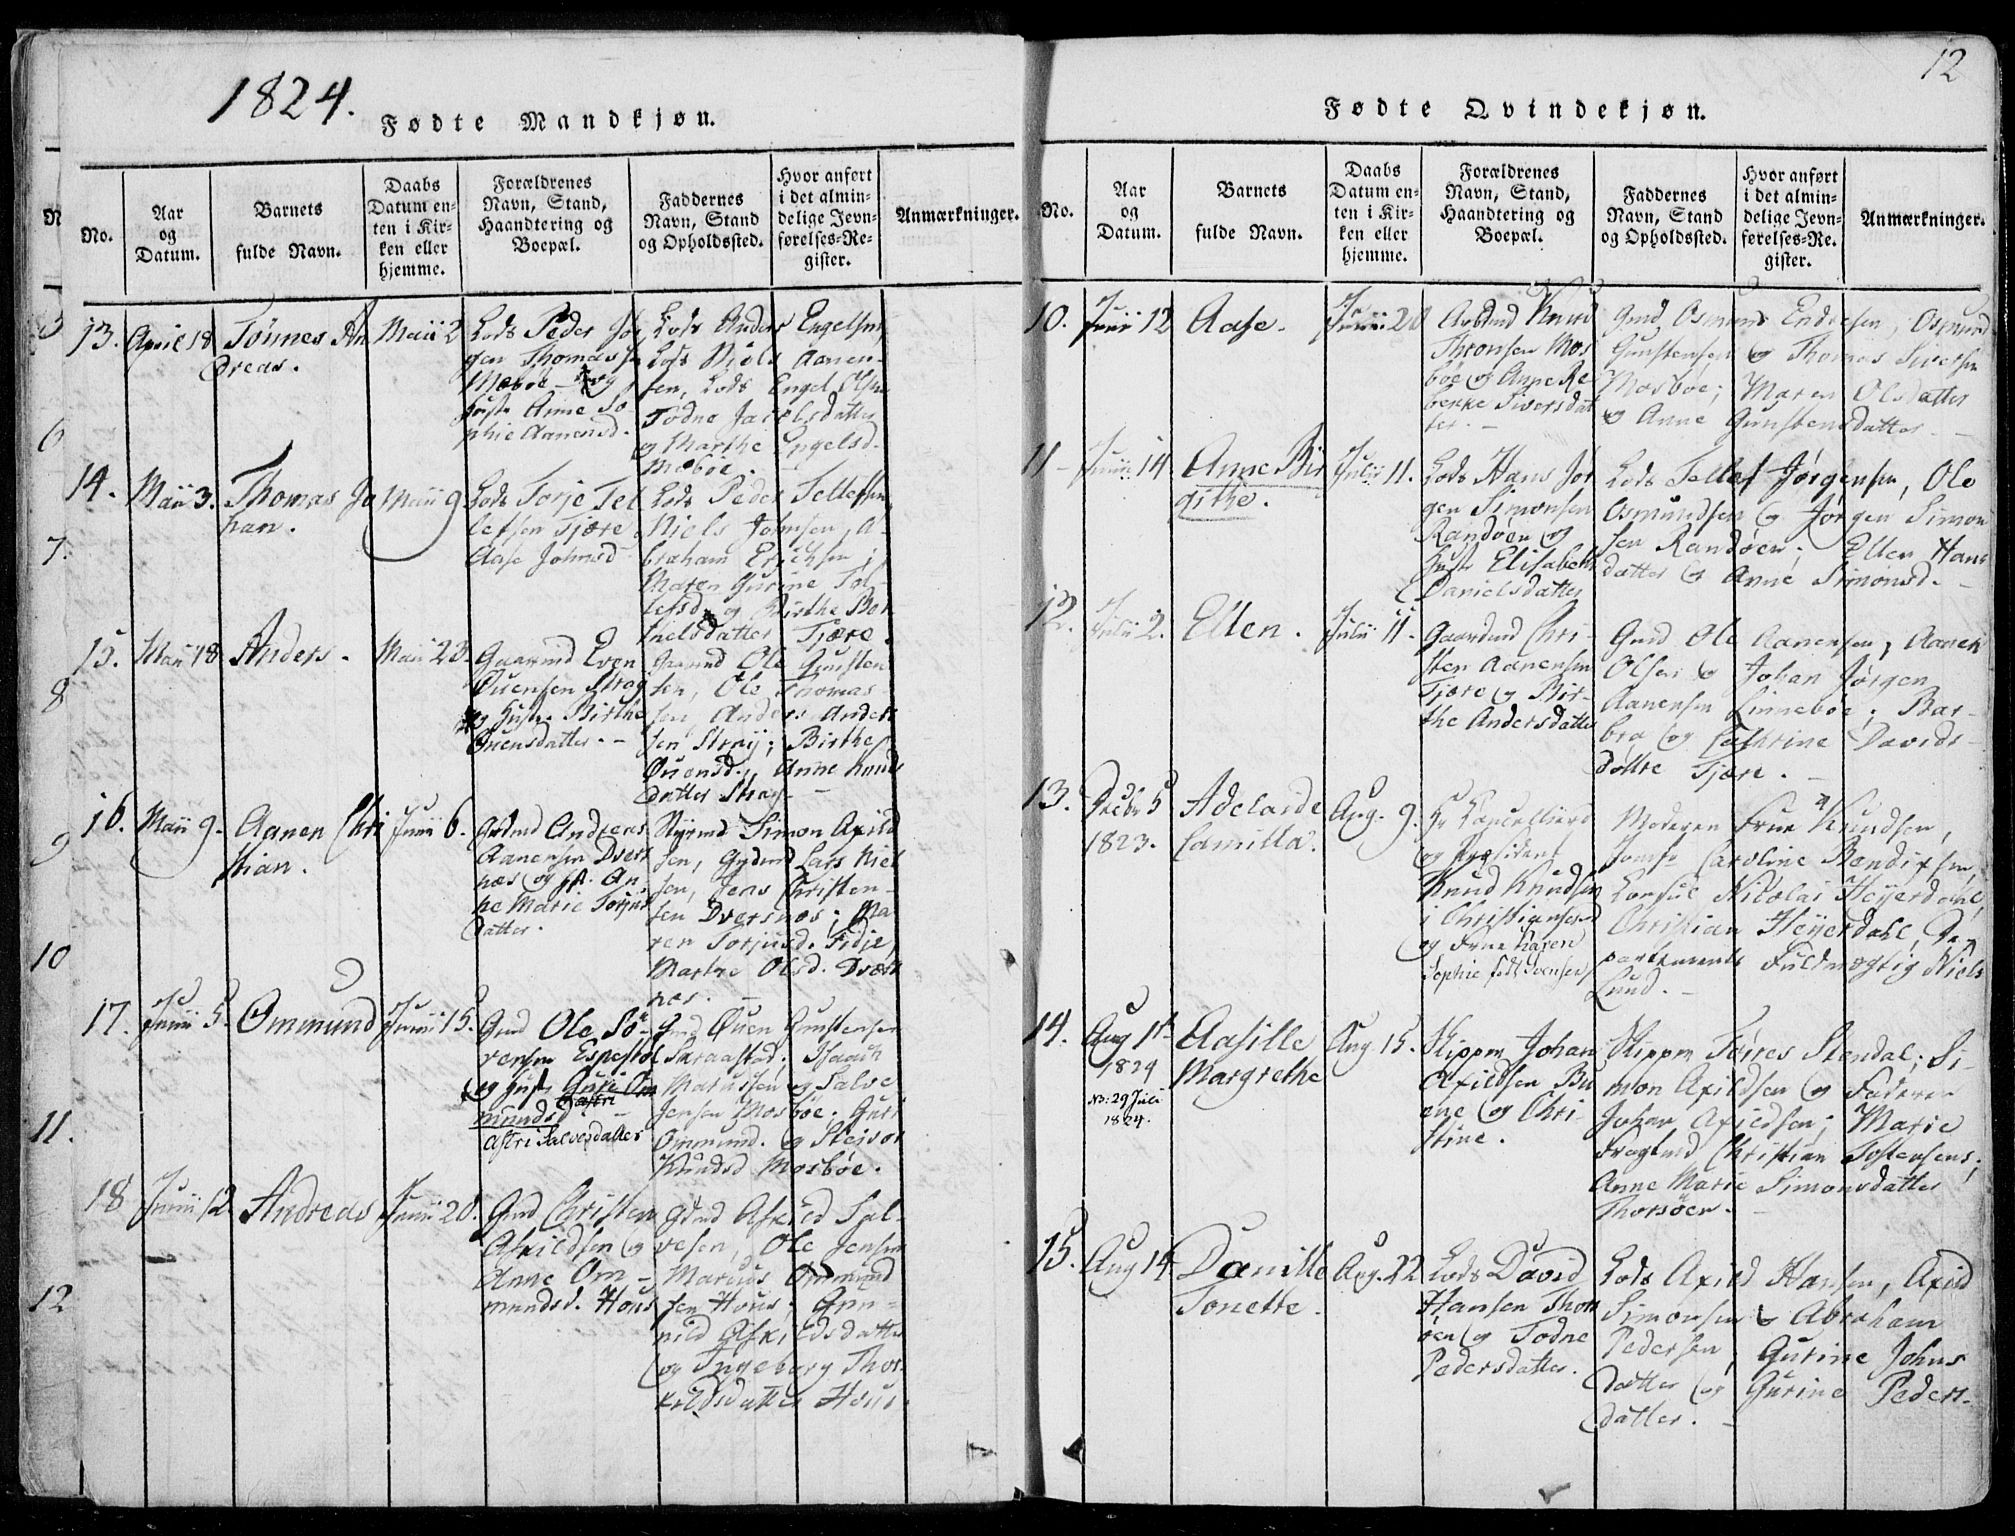 1824.
Fødte Mandkjøn.
No.
Aar
og
Datum.
Barnets
fulde Navn.
Daabs
Datum en-
ten i Kir-
ken eller
hjemme.
Forældrenes
Navn, Stand,
Haandtering og
Boepæl.
Faddernes
Navn, Stand
og Opholdssted.
Hvor anført
i det almin-
delige Jevn-
førelses-Re-
gister.
Anmærkninger.
13.
April 18
Tönnes An
dreas.
Maii 2
Lods Peder Jör
gen Thomassen
Mæböe og
Hustr Anne So-
phie Aanensd.
Lods Anders Engelsen,
Lods Niels Aanen-
sen, Lods Engel Olsen
Todne Jacobsdatter
og Marthe Engelsd.
Mæböe.
14.
Maii 3.
Thomas Jo
han.
Maii 9
Lods Torje Tel
lefsen Tjære
Aase Johnsd
Lods Peder Tellefsen
Niels Johnsen, A-
braham Erichsen;
Maren Gurine Tol-
lefsd og Birthe Bor-
nielsdatter Tjære.
15.
Maii 18
Anders.
Maii 23.
Gaarmd Even
Ouensen Straj
og Hustr. Birthe
Ouensdatter.
Gaarmd Ole Gunsten
sen, Ole Thomas-
sen, Anders Ander
sen Straij; Birthe
Ouensd., Anne Knuds
datter Straij
16.
Maii 9.
Aanen Chri
stian.
Junii 6.
Andreas
Aanensen Dvers
næs og H. An
ne Marie Torjus
datter.
Styrmd Simon Axild
sen, Gydmd Lars Niel
sen, Jens Christen-
sen Dversnæs; Ma
ren Torjusd. Fidje,
Marthe Olsd. Dvers
næs.
17.
Junii 5.
Ommund
Junii 15.
Gmd Ole Sö-
rensen Espestöl
og Hust. Guri Om
mundsd.
Astri Salvesdatter
Gmd Ouen Gunstensen
Skraastad. Isaach
Mariussen og Salve
Jensen Mosböe. Guri
Ommund. og Steivor
Knudsd Mosböe.
18
Junii 12
Andreas
Junii 20.
Gmd Christen
Askildsen og
Anne Om-
mundsd. Hous
Gdmd Askild Sal-
vesen, Ole Jensen
Marius Ommund
sen Hous; Gun-
nild Askildsdatter
og Ingeborg Thor
kildsdatter Hous.
12
Fødte Qvindekjøn.
No.
Aar
og
Datum.
Barnets
fulde Navn.
Daabs
Datum en-
ten i Kir-
ken eller
hjemme.
Forældrenes
Navn, Stand,
Haandtering og
Boepæl.
Faddernes
Navn, Stand
og Opholdssted.
Hvor anført
i det almin-
delige Jevn-
førelses-Re-
gister.
Anmærkninger.
10.
Junii 12
Aase.
Junii 20
Arbmd Knud
Thronsen Mos
böe og Anne Re
bekke Siversdat
ter.
Gmd Osmund Endresen, Osmund
Gunstensen og Thomas Siversen
Mosböe; Maren Olsdatter
og Anne Gunstensdatter
11
Junii 14
Anne Bir
githe.
Julii 11.
Lods Hans Jör
gen Simonsen
Randöen og
Hustr Elisabeth
Danielsdatter
Lods Tellef Jörgensen, Ole
Osmundsen og Jörgen Simon
sen Randöen; Ellen Hans
datter og Anne Simonsd.
12.
Julii 2.
Ellen.
Julii 11.
Gaardmd Chri-
sten Aanensen
Tjære og Bir-
the Andersdatter
Gmd Ole Aanensen, Aanen
Olsen og Johan Jörgen
Aanensen Linneböe; Bar-
bra og Cathrine Davids-
döttre Tjære.
13.
Decbr 5
1823.
Adelaide
Camilla.
Aug. 9.
Hr Cancelliraad
og Præsident
Knud Knudsen
i Christiansand
og Frue Karen
Sophie född Svensen
Moderen Frue Knudsen,
Jomfr Caroline Bendixsen,
Konsul Nicolai Heyerdahl,
Christian Heyerdahl, De-
partements Fuldmægtig Niels
Lund.
14.
Aug 1ste
1824
NB: 29 Juli
1824.
Aasille
Margrethe
Aug 15.
Skippm Johan
Axildsen Bu
ene og Chri-
stine.
Skippm Törres Stendal; Si-
mon Axildsen og Faderen
Johan Axildsen; Marie
Christian Tostensens;
Anne Marie Simonsdatter
Thorsöen.
15.
Aug 14
Danille
Tonette.
Aug. 22
Lods David
Hansen Thors
öen og Todne
Pedersdatter.
Lods Axild Hansen, Axild
Simonsen og Abraham
Pedersen; Gurine Johns
datter og Gurine Peders-
datter.
N
6
7.
8
9
10
11.
12